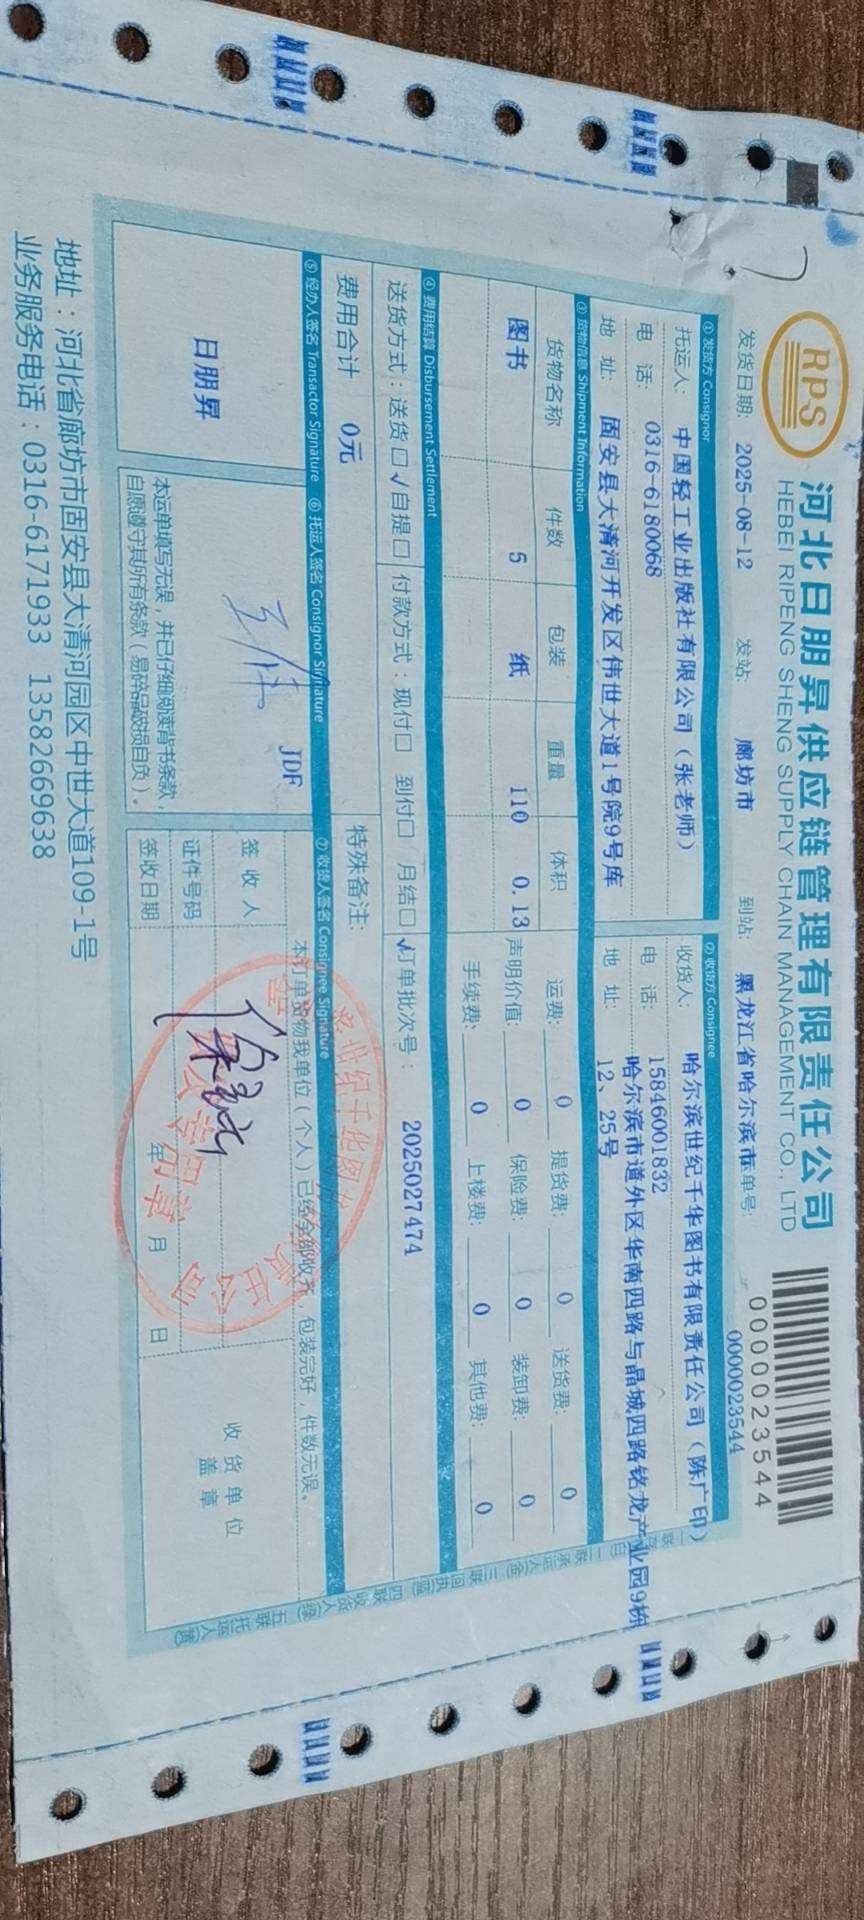 RPS
河北日朋昇供应链管理有限责任公司
HEBEI RIPENG SHENG SUPPLY CHAIN MANAGEMENT CO., LTD
0000023544
发货日期: 2025-08-12 发站: 廊坊市 到站: 黑龙江省哈尔滨市 单号: 0000023544
① 发货方 Consignor ② 收货方 Consignee
托运人: 中国轻工业出版社有限公司(张老师) 收货人: 哈尔滨世纪千华图书有限责任公司(陈广印)
电 话: 0316-6180068 电 话: 15846001832
地 址: 固安县大清河开发区伟世大道1号院9号库 地 址: 哈尔滨市道外区华南四路与晶城四路铭龙产业园9栋
12、25号
③ 货物信息 Shipment Information
货物名称 件数 包装 重量 体积 运费: 0 提货费: 0 送货费: 0
图书 5 纸 110 0.13 声明价值: 0 保险费: 0 装卸费: 0
手续费: 0 上楼费: 0 其他费: 0
④ 费用结算 Disbursement Settlement
送货方式:送货□√自提□ 付款方式:现付□ 到付□ 月结□√ 订单批次号: 2025027474
费用合计 0元 特殊备注:
⑤ 经办人签名 Transactor Signature ⑥ 托运人签名 Consignor Signature ⑦ 收货人签名 Consignee Signature
日朋昇
JDF
本订单货物我单位(个人)已经全部收齐,包装完好,件数无误。
签 收 人
证件号码
签收日期 年 月 日
收货单位
盖 章
本运单填写无误,并已仔细阅读背书条款,
自愿遵守其所有条款(易碎品破损自负)。
地址:河北省廊坊市固安县大清河园区中世大道109-1号
业务服务电话:0316-6171933 13582669638